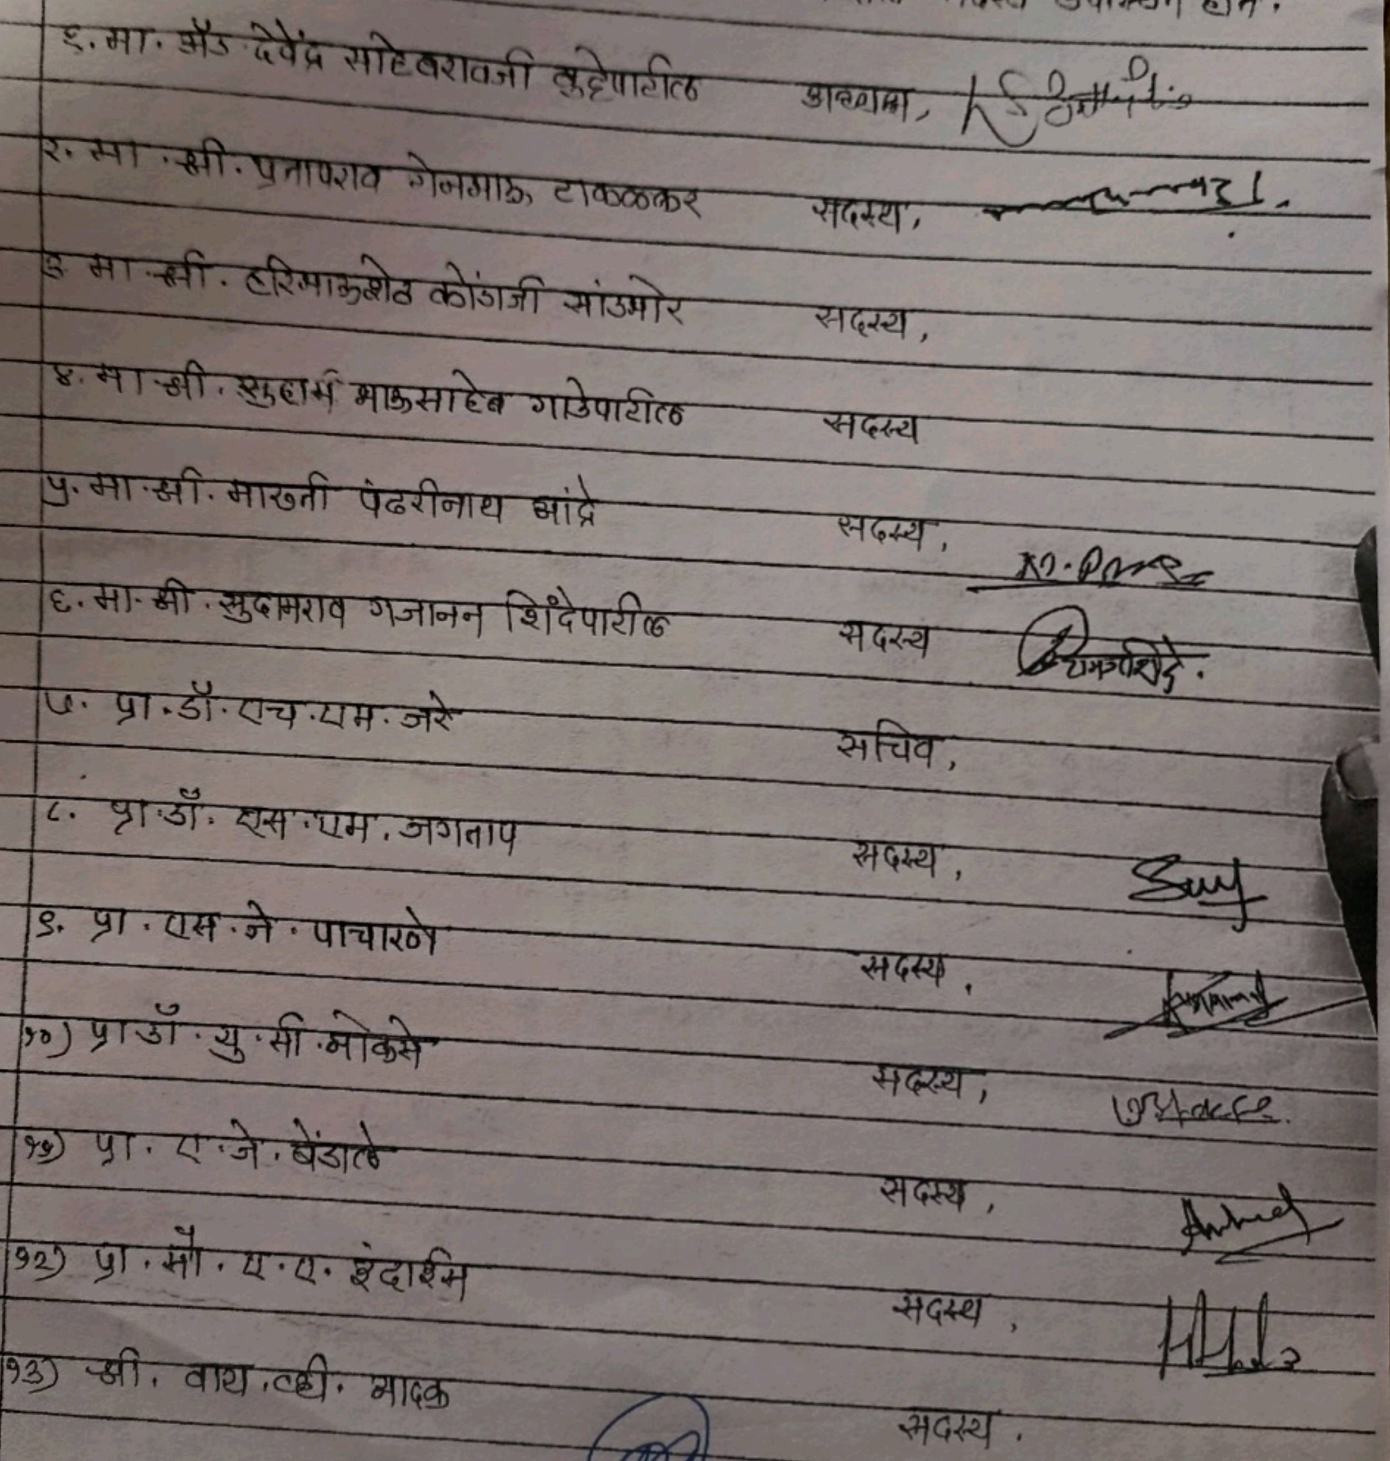 उपस्थित होते.
१. मा. अॅड देवेंद्र साहेबरावजी बुट्टेपाटील अध्यक्ष,
२. मा. श्री. प्रतापराव गेनभाऊ टाकळकर सदस्य,
३ मा श्री. हरिभाऊशेठ कोंडाजी सांडभोर सदस्य,
४. मा श्री. भाऊसाहेब गाडेपाटील सदस्य
५. मा. श्री. मारुती पंढरीनाथ भांद्रे सदस्य,
६. मा. श्री. सुदामराव गजानन शिंदेपाटील सदस्य
७. प्रा. डॉ. एच. एम. जरे सचिव,
८. प्रा. डॉ. एस. एम. जगताप सदस्य,
९. प्रा. एस. जे. पाचारणे सदस्य,
१०) प्रा डॉ. यु. सी. भोकसे सदस्य,
११) प्रा. ए. जे. बेंडाले सदस्य,
१२) प्रा. सौ. ए. ए. सदस्य,
१३) श्री. वाय. व्ही. मादक सदस्य.